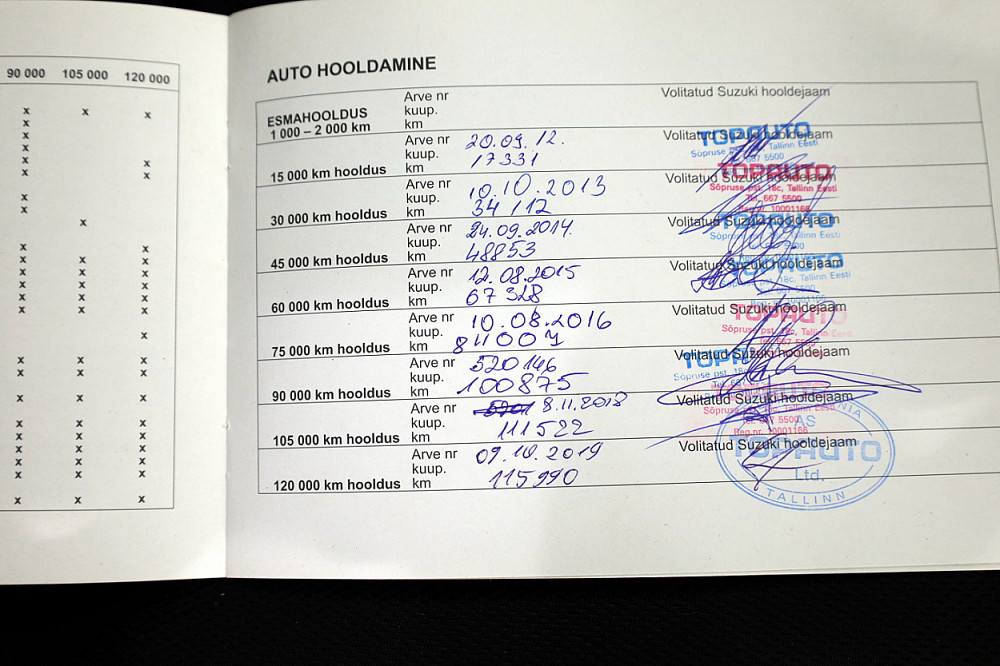 90 000 105 000 120 000
x x x
x
x
x
x x
x x
x
x
x
x x
x x x
x x x
x x x
x x x
x x x
x
x x x
x x x
x x x
x x x
x x x
x x x
x x x
x x x
x x x
AUTO HOOLDAMINE
Arve nr Volitatud Suzuki hooldejaam
ESMAHOOLDUS kuup.
1 000 – 2 000 km km
Arve nr 20.09.12. Volitatud Suzuki hooldejaam
kuup. 17331
15 000 km hooldus km
TOPAUTO
Sõpruse Tallinn Eesti
5500
Arve nr 10.10.2013 Volitatud Suzuki hooldejaam
kuup.
30 000 km hooldus km 34112
TOPAUTO
Sõpruse pst. 18c, Tallinn Eesti
Tel. 667 5500
Reg.nr. 10001166
Arve nr 24.09.2014. Volitatud Suzuki hooldejaam
kuup.
45 000 km hooldus km 48853
TOPAUTO
Tallinn Eesti
Arve nr 12.08.2015 Volitatud Suzuki hooldejaam
kuup.
60 000 km hooldus km 67328
TOPAUTO
18c, Tallinn Eesti
Arve nr 10.08.2016 Volitatud Suzuki hooldejaam
kuup.
75 000 km hooldus km
TOPAUTO
Sõpruse pst. 18c, Tallinn Eesti
Arve nr 520146 Volitatud Suzuki hooldejaam
kuup.
90 000 km hooldus km 100875
Sõpruse pst. 18c
Arve nr 8.11.2018 Volitatud Suzuki hooldejaam
kuup.
105 000 km hooldus km 111522
Sõpruse pst. 18c, Tallinn Eesti
Tel. 667 5500
Reg.nr. 10001166
Arve nr 09.10.2019 Volitatud Suzuki hooldejaam
kuup.
120 000 km hooldus km 115990
AS
TOPAUTO
Ltd.
TALLINN